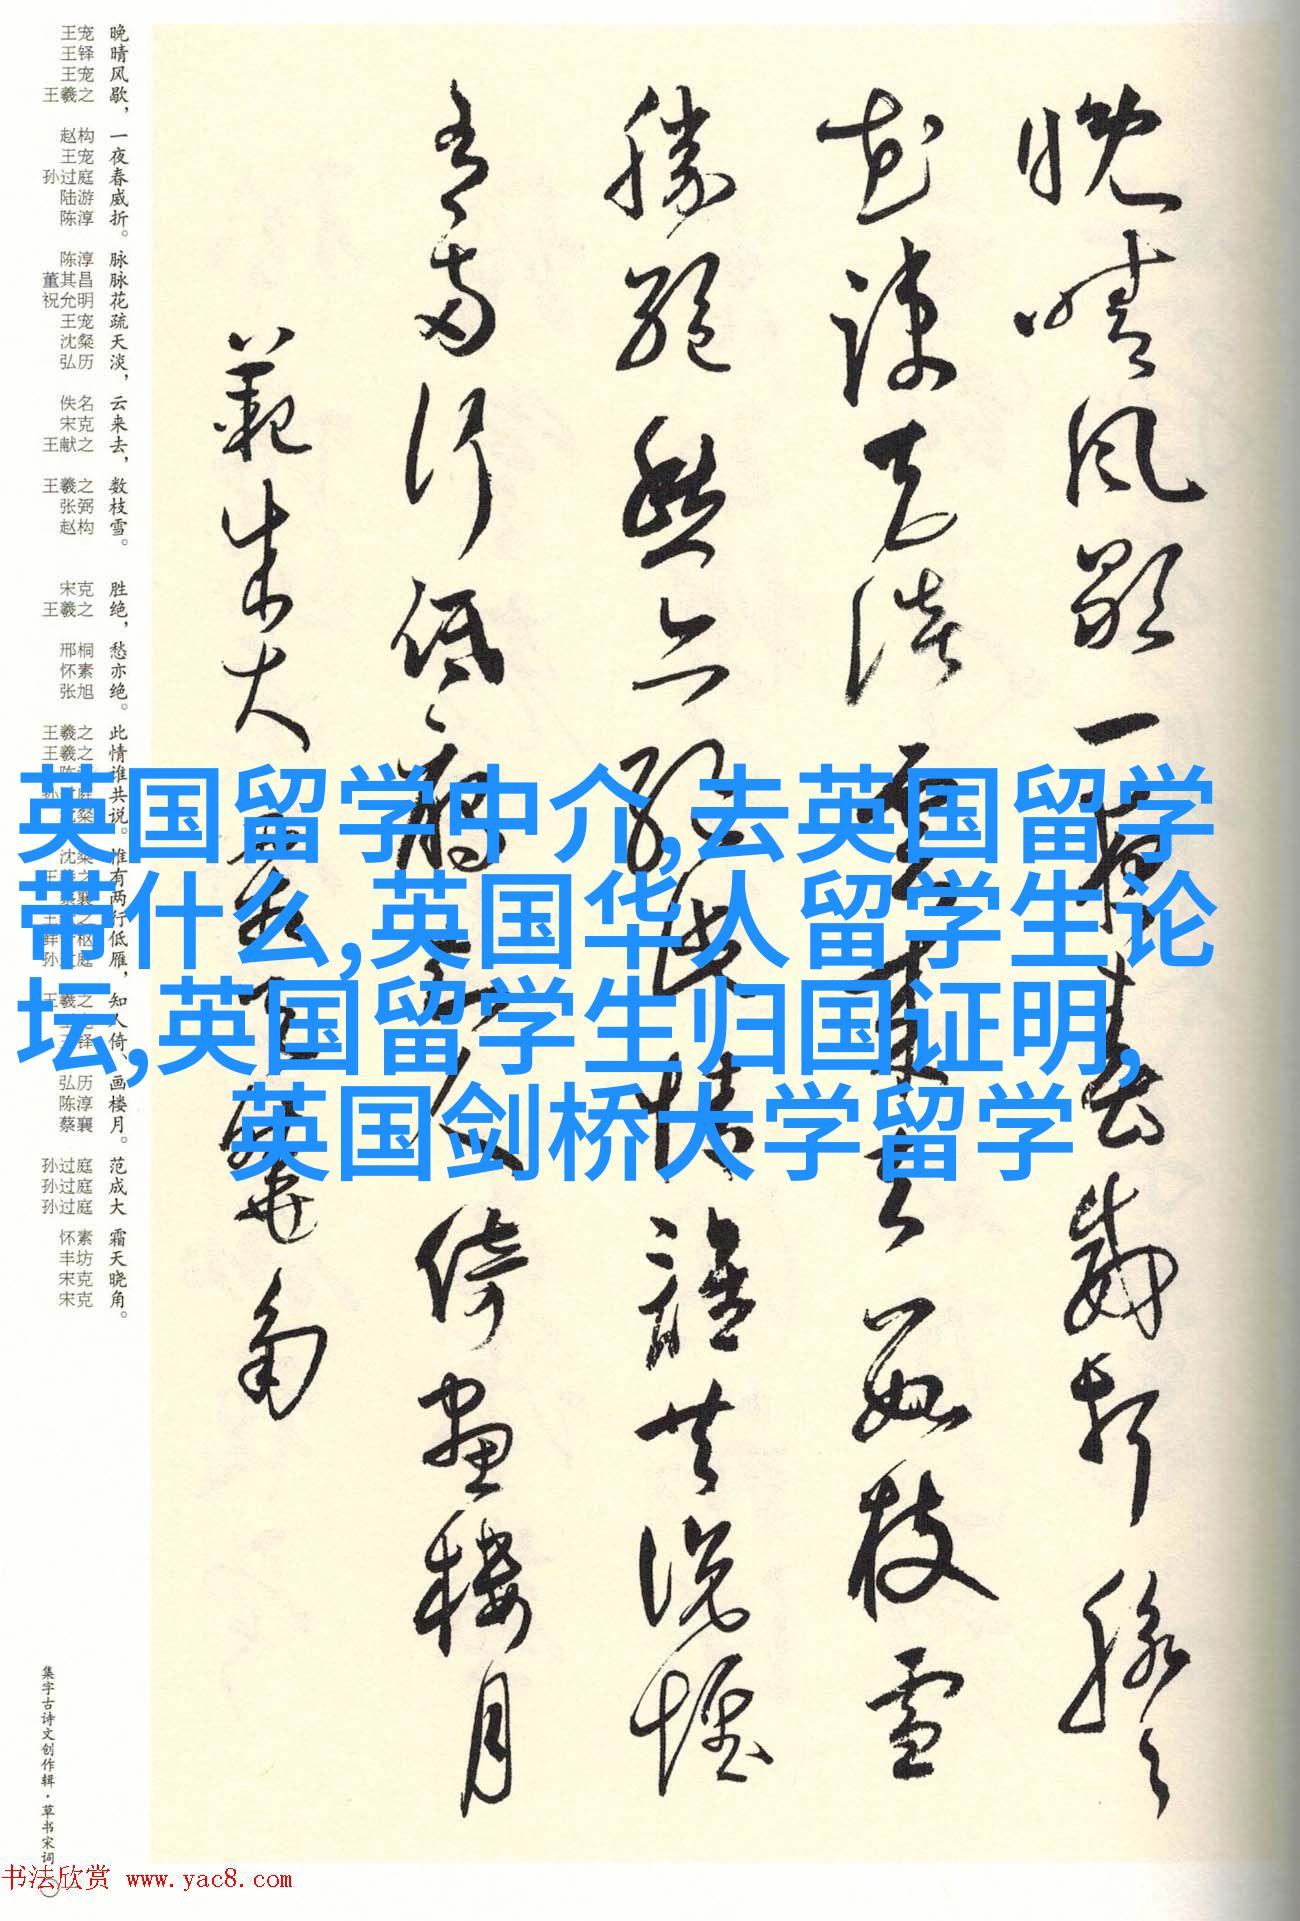 晚晴风歇一夜春威折脉々
花疏天淡云来去数枝雪
胜绝愁亦绝此情谁共说惟
有两行低雁知人倚画楼月
范成大霜天晓角
晚晴风歇，一夜春威折。脉脉花疏天淡，云来去，数枝雪。胜绝，愁亦绝。此情谁共说。惟有两行低雁，知人倚、画楼月。范成大霜天晓角。
王宠 王铎 王宠 王羲之 赵构 王宠 孙过庭 陆游 陈淳 陈淳 董其昌 祝允明 王宠 沈粲 弘历 佚名 宋克 王献之 王羲之 张弼 赵构 宋克 王羲之 邢桐 怀素 张旭 王羲之 王羲之 弘历 陈淳 蔡襄 孙过庭 孙过庭 孙过庭 怀素 丰坊 宋克 宋克
集字古诗文创作辑·草书宋词
英国留学中介,去英国留学
带什么,英国华人留学生论
坛,英国留学生归国证明,
英国剑桥大学留学
书法欣赏 www.yac8.com